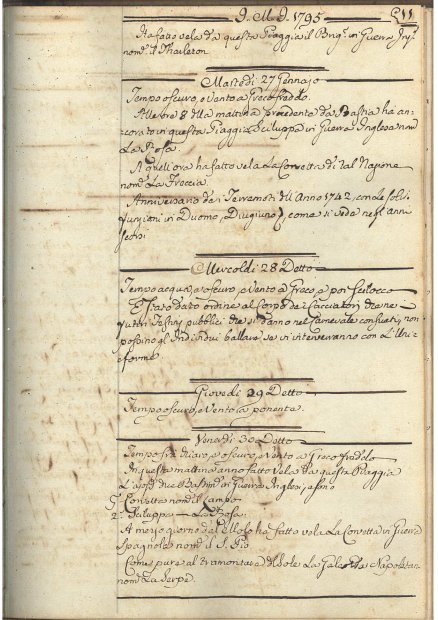 I. M. I. 1795
511
Ha fatto vela da questa Piaggia il Brig.º in Guerra Ing.e
nom.º il Tharleton.
Martedì 27 Gennajo
Tempo oscuro, e vento a Greco freddo.
Alle ore 8 della mattina procedente da Bastia ha an=
corato in questa Piaggia La Scialuppa in Guerra Inglesa nom.a
La Rosa.
A quell'ora ha fatto vela La Corvetta di tal Nazione
nom.a La Freccia.
Anniversario dei Terremoti dell'Anno 1742, con le solite
funzioni in Duomo, Digiuno, come si vede negl'anni
scorsi.
Mercoldì 28 Detto
Tempo acqua, e oscuro, e vento a Greco, e poi Scilocco
È stato dato ordine al Corpo dei Cacciatori che ne
Festini pubblici che si danno nel Carnevale non
possino gl'Individui ballare se vi interverranno con L'Uni=
forme.
Giovedì 29 Detto
Tempo oscuro, e vento a ponente.
Venerdì 30 Detto
Tempo fra chiaro, e oscuro, e vento a Greco freddo
In questa mattina anno fatto vela da questa Piaggia
due Bastim.ti in Guerra Inglesi, e sono
Corvetta nom.a il
Scialuppa — La Rosa.
A mezzo giorno del ha fatto vela La Corvetta in Guerra
Spagnola nom.a il S. Pio
Come pure al tramontare del Sole La Galeotta Napoletan
nom.a La Serpe.